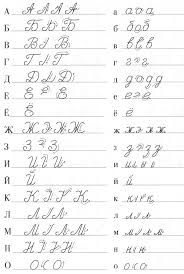 А А А А А а а о а
Б Б Б Б б б о б
В В І В в в в в
Г Г І Г г г г г
Д Д Д д д о д д
Е Е Е е е г е
Ё Ё ё ё
Ж Ж Э Ж Ж ж ж э ж ж
З З З З з з о з з
И И И И и и и и
Й Й й й
К К К К к к к к
Л Л І Л л л ı л
М М І М м м ı м
Н Н Н Н н н н
О О О О о о о